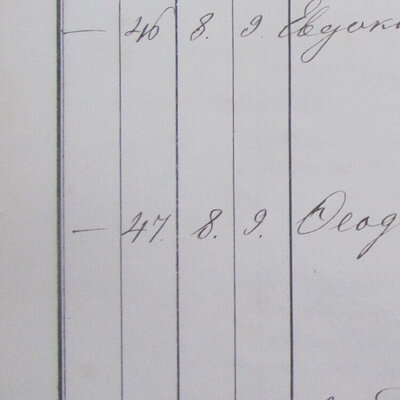 — 46 8. 9. Евдоки
— 47. 8. 9. Ѳеод